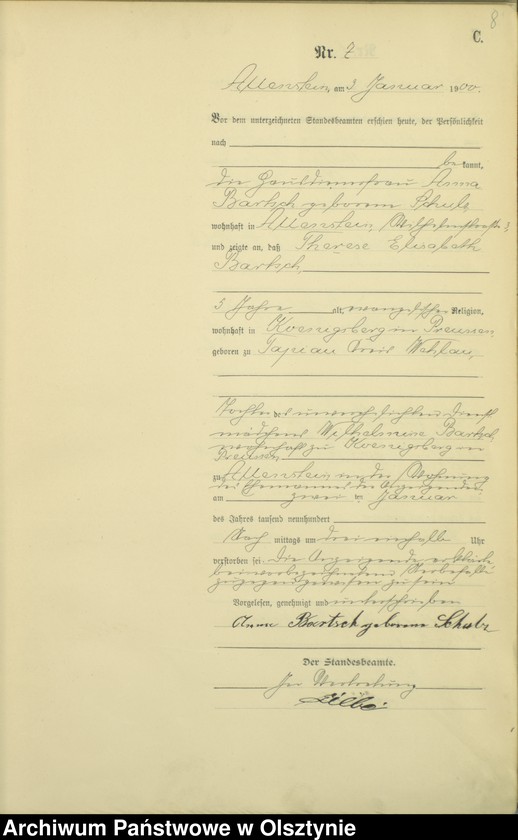 8
C.
Nr. 7
Allenstein, am 3 Januar 1900.
Vor dem unterzeichneten Standesbeamten erschien heute, der Persönlichkeit
nach
bekannt,
die Anna
Bartsch geborene Schulz
wohnhaft in Allenstein, Wilhelmstraße
und zeigte an, daß Therese Elisabeth
Bartsch,
5 Jahre alt, evangelischer Religion,
wohnhaft in Koenigsberg in Preussen
geboren zu Tapiau Kreis Wehlau,
Tochter der unverehelichten Dienst
mädchens Wilhelmine Bartsch,
wohnhaft zu Koenigsberg in
Preussen,
zu Allenstein in der Wohnung
des Ehemannes der Anzeigenden,
am zwei ten Januar
des Jahres tausend neunhundert
Nach mittags um drei einhalb Uhr
verstorben sei. Die Anzeigende erklärte
bei vorbezeichnetem Sterbefalle
zugegen gewesen zu sein
Vorgelesen, genehmigt und unterschrieben
Anna Bartsch geborene Schulz
Der Standesbeamte.
In Vertretung
Archiwum Państwowe w Olsztynie